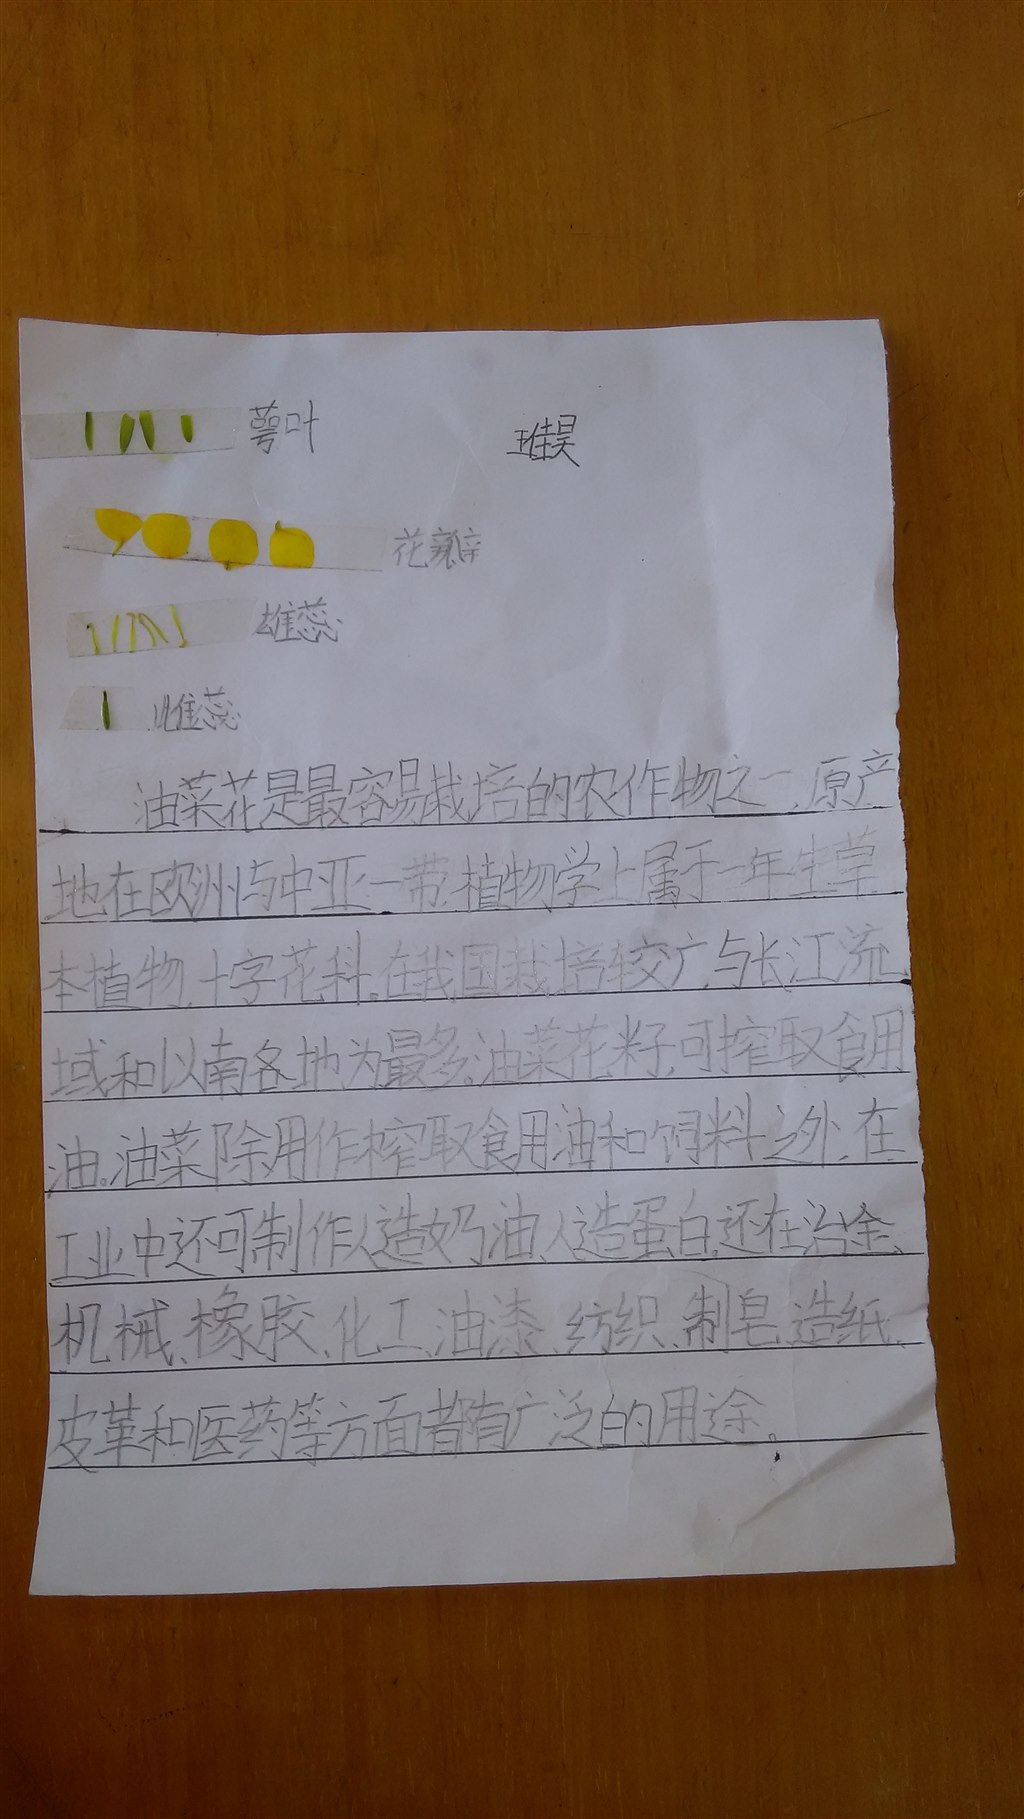 萼叶
王佳昊
花瓣
雄蕊
雌蕊
油菜花是最容易栽培的农作物之一,原产
地在欧洲与中亚一带,植物学上属于一年生草
本植物,十字花科。在我国栽培较广,与长江流
域和以南各地为最多。油菜花籽可榨取食用
油。油菜除用作榨取食用油和饲料之外,在
工业中还可制作人造奶油、人造蛋白,还在冶金、
机械、橡胶、化工、油漆、纺织、制皂、造纸、
皮革和医药等方面都有广泛的用途。